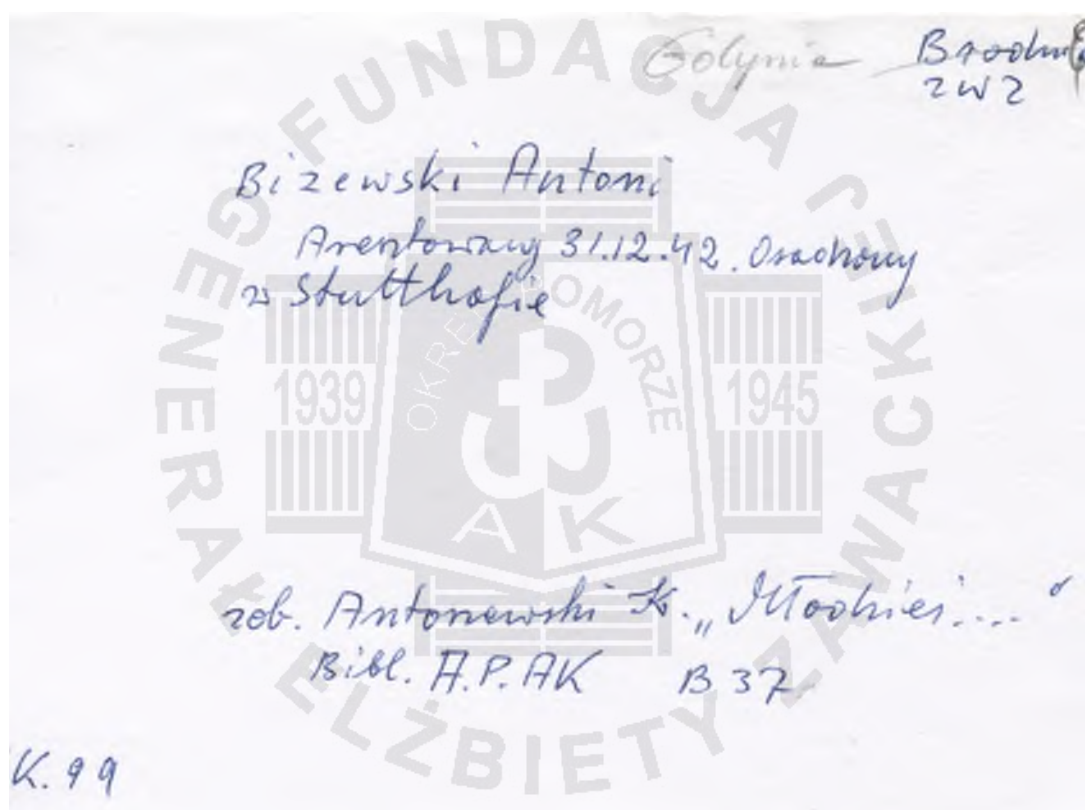 Gdynia Brodni
ZWZ
Biżewski Antoni
Aresztowany 31.12.42. Osadzony
w Stutthofie
zob. Antoniewski K. „Młodzież....”
Bibl. A.P.AK B 37
K.99
FUNDACJA GENERAŁ ELŻBIETY ZAWACKIEJ
OKRĘG POMORZE
1939
1945
AK